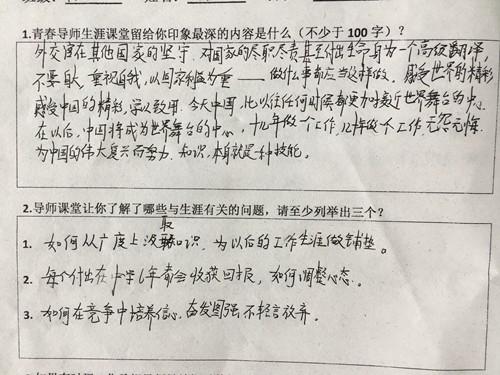 1.青春导师生涯课堂留给你印象最深的内容是什么（不少于 100 字）？
外交官在其他国家的坚守，对国家的尽职尽责甚至付出生命，身为一个高级翻译
不要自大，重视自我，以国家利益为重——做什么事都应当这样做，感受世界的精彩
感受中国的精彩，学以致用，今天中国，比以往任何时候都更加接近世界舞台的中心
在以后，中国将成为世界舞台的中心，十几年做一个工作，几十年做一个工作，无怨无悔
为中国的伟大复兴而努力，知识，本身就是种技能。
2.导师课堂让你了解了哪些与生涯有关的问题，请至少列举出三个？
1. 如何从广度上汲取知识，为以后的工作生涯做铺垫。
2. 每个付出在中学6年都会收获回报，如何调整心态。
3. 如何在竞争中培养信心，奋发图强不轻言放弃。